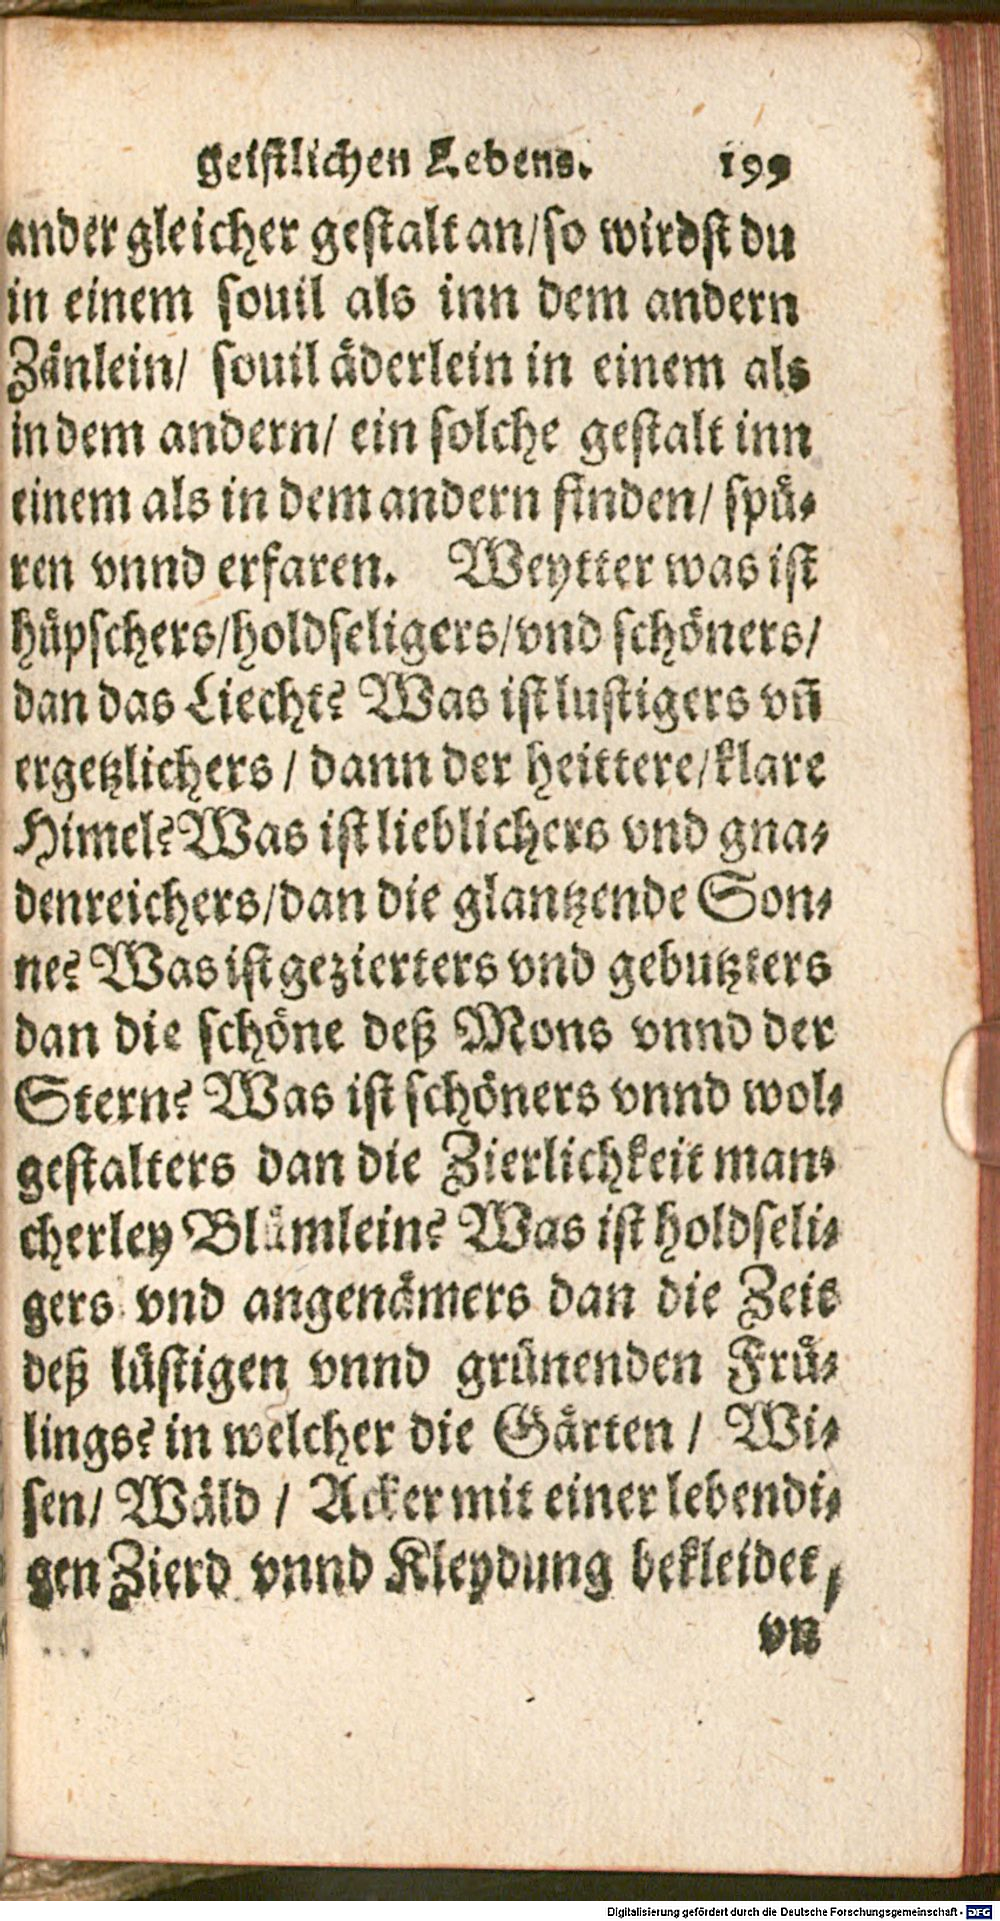 geistlichen Lebens. 199
ander gleicher gestalt an/so wirdst du
in einem souil als inn dem andern
Zänlein/ souil äderlein in einem als
in dem andern/ ein solche gestalt inn
einem als in dem andern finden/ spü-
ren vnnd erfaren. Weytter was ist
hüpschers/holdseligers/vnd schöners/
dan das Liecht? Was ist lustigers vn̄
ergetzlichers / dann der heittere/klare
Himel? Was ist lieblichers vnd gna-
denreichers/dan die glantzende Son-
ne? Was ist gezierters vnd gebutzters
dan die schöne deß Mons vnnd der
Stern? Was ist schöners vnnd wol-
gestalters dan die Zierlichkeit man-
cherley Blümlein? Was ist holdseli-
gers vnd angenämers dan die Zeit
deß lüstigen vnnd grünenden Frü-
lings? in welcher die Gärten / Wi-
sen/ Wäld / Acker mit einer lebendi-
gen Zierd vnnd Kleydung bekleidet,
vn
Digitalisierung gefördert durch die Deutsche Forschungsgemeinschaft - DFG